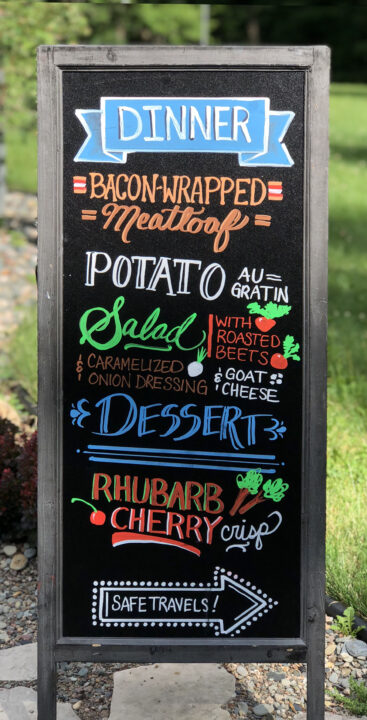 DINNER
BACON-WRAPPED
= Meatloaf =
POTATO AU=
GRATIN
Salad WITH
ROASTED
BEETS
& CARAMELIZED
ONION DRESSING
& GOAT
CHEESE
DESSERT
RHUBARB
CHERRY crisp
SAFE TRAVELS!